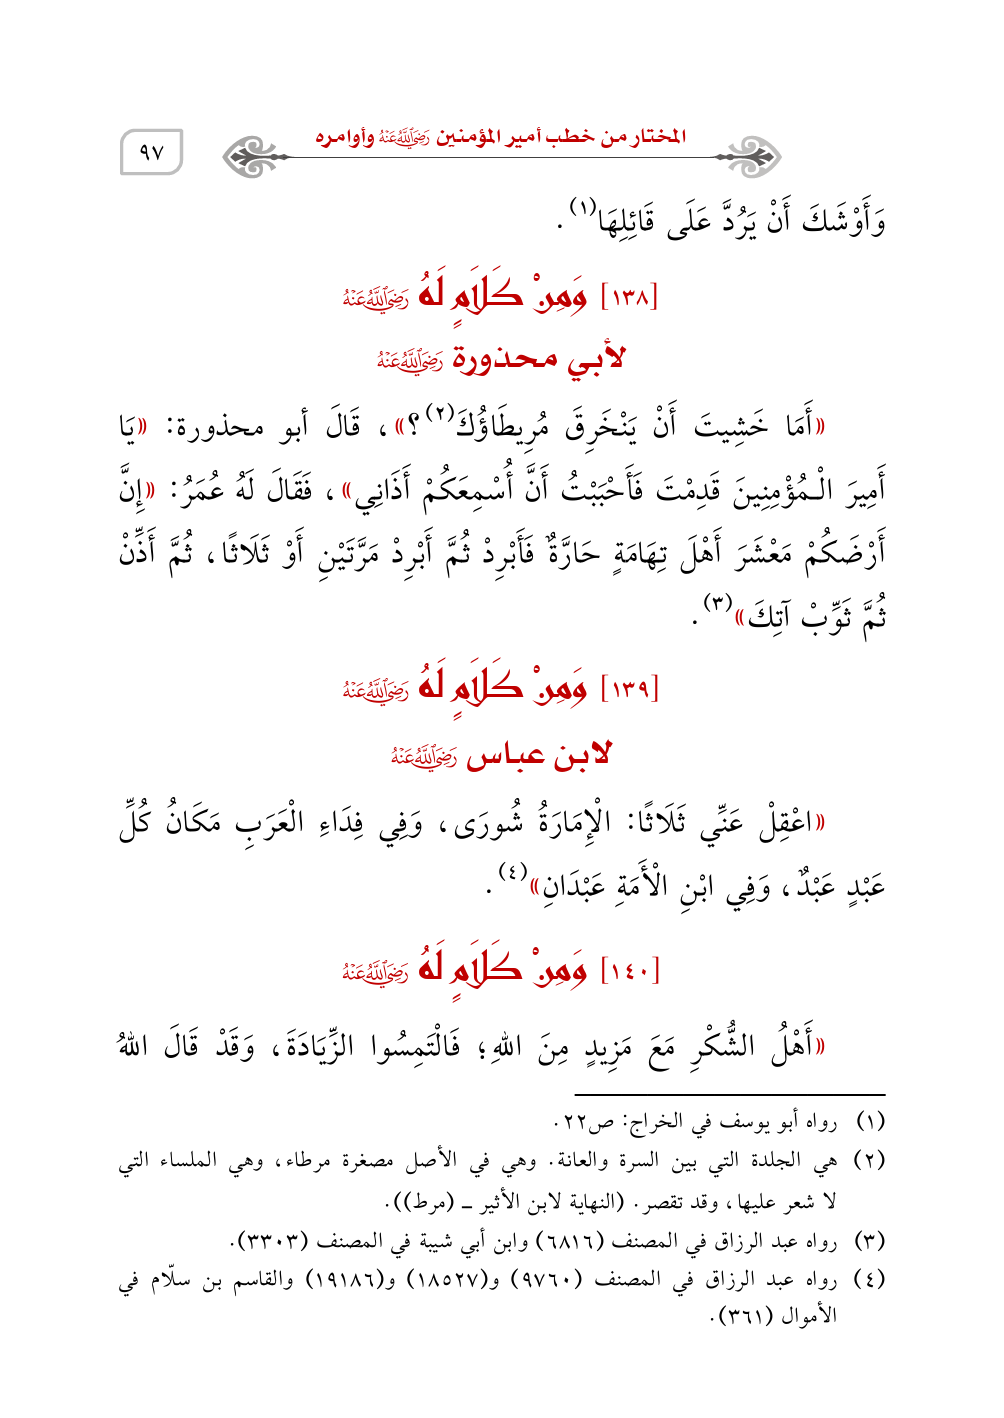 المختار من خطب أمير المؤمنين رَضِيَ اللَّهُ عَنْهُ وأوامره
٩٧
وَأَوْشَكَ أَنْ يَرُدَّ عَلَى قَائِلِهَا(١).
[١٣٨] وَمِنْ كَلَامٍ لَهُ رَضِيَ اللَّهُ عَنْهُ
لأبي محذورة رَضِيَ اللَّهُ عَنْهُ
«أَمَا خَشِيتَ أَنْ يَنْخَرِقَ مُرِيطَاؤُكَ(٢)؟»، قَالَ أبو محذورة: «يَا
أَمِيرَ الْـمُؤْمِنِينَ قَدِمْتَ فَأَحْبَبْتُ أَنَّ أُسْمِعَكُمْ أَذَانِي»، فَقَالَ لَهُ عُمَرُ: «إِنَّ
أَرْضَكُمْ مَعْشَرَ أَهْلَ تِهَامَةٍ حَارَّةٌ فَأَبْرِدْ ثُمَّ أَبْرِدْ مَرَّتَيْنِ أَوْ ثَلَاثًا، ثُمَّ أَذِّنْ
ثُمَّ ثَوِّبْ آتِكَ»(٣).
[١٣٩] وَمِنْ كَلَامٍ لَهُ رَضِيَ اللَّهُ عَنْهُ
لابن عباس رَضِيَ اللَّهُ عَنْهُ
«اعْقِلْ عَنِّي ثَلَاثًا: الْإِمَارَةُ شُورَى، وَفِي فِدَاءِ الْعَرَبِ مَكَانُ كُلِّ
عَبْدٍ عَبْدٌ، وَفِي ابْنِ الْأَمَةِ عَبْدَانِ»(٤).
[١٤٠] وَمِنْ كَلَامٍ لَهُ رَضِيَ اللَّهُ عَنْهُ
«أَهْلُ الشُّكْرِ مَعَ مَزِيدٍ مِنَ اللهِ؛ فَالْتَمِسُوا الزِّيَادَةَ، وَقَدْ قَالَ اللهُ
(١) رواه أبو يوسف في الخراج: ص٢٢.
(٢) هي الجلدة التي بين السرة والعانة. وهي في الأصل مصغرة مرطاء، وهي الملساء التي
لا شعر عليها، وقد تقصر. (النهاية لابن الأثير ــ (مرط)).
(٣) رواه عبد الرزاق في المصنف (٦٨١٦) وابن أبي شيبة في المصنف (٣٣٠٣).
(٤) رواه عبد الرزاق في المصنف (٩٧٦٠) و(١٨٥٢٧) و(١٩١٨٦) والقاسم بن سلّام في
الأموال (٣٦١).